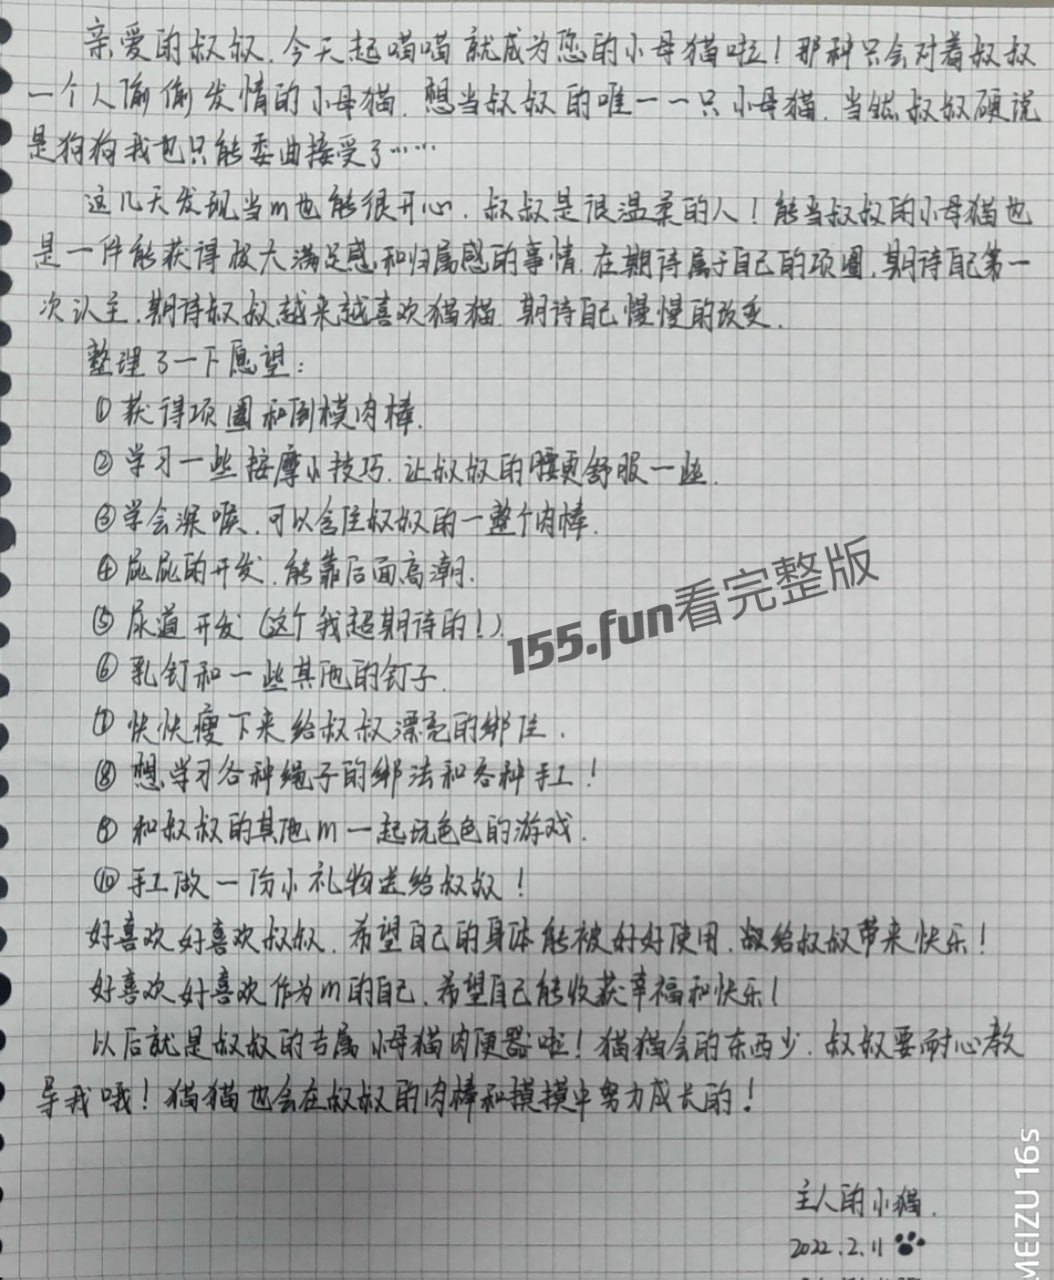 亲爱的叔叔,今天起喵喵就成为您的小母猫啦!那种只会对着叔叔
一个人偷偷发情的小母猫,想当叔叔的唯一一只小母猫,当然叔叔硬说
是狗狗我也只能委曲接受了……
这几天发现当m也能很开心,叔叔是很温柔的人!能当叔叔的小母猫也
是一件能获得极大满足感和归属感的事情,在期待属于自己的项圈,期待自己第一
次认主,期待叔叔越来越喜欢猫猫,期待自己慢慢的改变.
整理了一下愿望:
①获得项圈和倒模肉棒.
②学习一些按摩小技巧,让叔叔的腰更舒服一些.
③学会深喉,可以含住叔叔的一整个肉棒.
④屁屁的开发,能靠后面高潮.
⑤尿道开发(这个我超期待的!)
⑥乳钉和一些其他的钉子.
⑦快快瘦下来给叔叔漂亮的绑住.
⑧想学习各种绳子的绑法和各种手工!
⑨和叔叔的其他m一起玩色色的游戏.
⑩手工做一份小礼物送给叔叔!
好喜欢好喜欢叔叔,希望自己的身体能被好好使用,能给叔叔带来快乐!
好喜欢好喜欢作为m的自己,希望自己能收获幸福和快乐!
以后就是叔叔的专属小母猫肉便器啦!猫猫会的东西少,叔叔要耐心教
导我哦!猫猫也会在叔叔的肉棒和摸摸中努力成长的!
主人的小猫.
2022.2.11
155.fun看完整版
MEIZU 16s